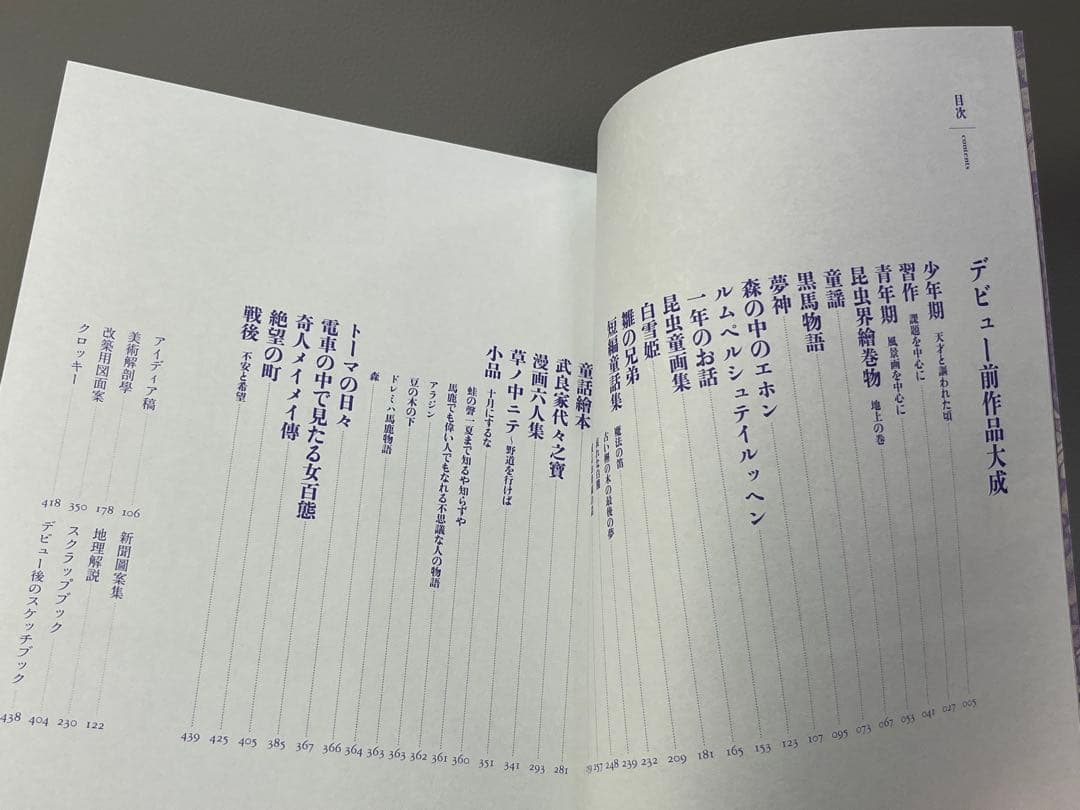 目次
contents
デビュー前作品大成
少年期 天才と謳われた頃 005
習作 課題を中心に 027
青年期 風景画を中心に 041
昆虫界繪巻物 地上の巻 053
童謡 067
黒馬物語 073
夢神 095
森の中のエホン 107
ルムペルシュテイルッヘン 123
一年のお話 153
昆虫童画集 165
白雪姫 181
雛の兄弟 209
短編童話集
魔法の笛 232
古い樫の木の最後の夢 239
248
257
童話繪本
武良家代々之寶 281
漫画六人集 293
草ノ中ニテ～野道を行けば 341
小品 351
十月にするな 360
蛙の聲一夏まで知るや知らずや 361
馬鹿でも偉い人でもなれる不思議な人の物語 362
アラジン 363
豆の木の下 363
ドレミハ馬鹿物語 364
森 366
トーマの日々 367
電車の中で見たる女百態 385
奇人メイメイ傳 405
絶望の町 425
戦後 不安と希望 439
アイディア稿 106
美術解剖學 178
改築用図面案 350
クロッキー 418
新聞圖案集 122
地理解説 230
スクラップブック 404
デビュー後のスケッチブック 438